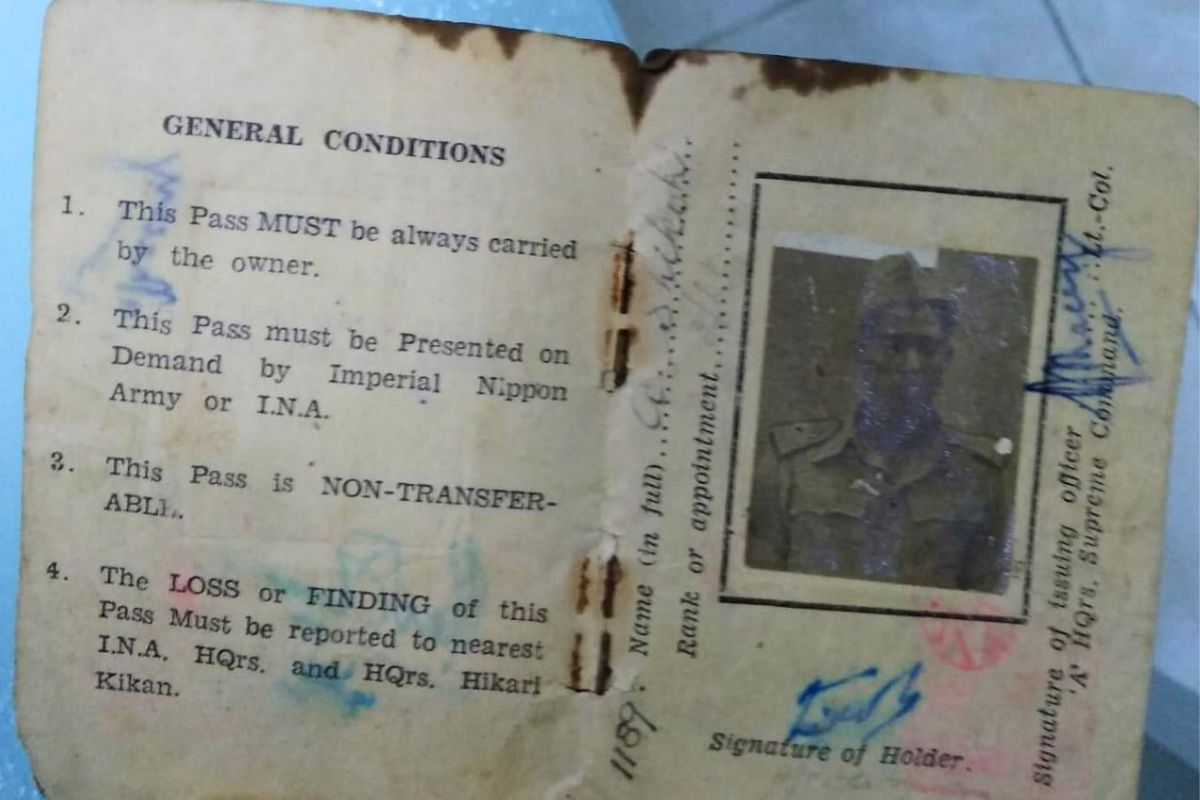 GENERAL CONDITIONS
1. This Pass MUST be always carried
by the owner.
2. This Pass must be Presented on
Demand by Imperial Nippon
Army or I.N.A.
3. This Pass is NON-TRANSFER-
ABLE.
4. The LOSS or FINDING of this
Pass Must be reported to nearest
I.N.A. HQrs. and HQrs. Hikari
Kikan.
1189
Name (in full)
Rank or appointment
Signature of Holder.
Signature of issuing officer
Lt.-Col.
'A' HQrs. Supreme Command.